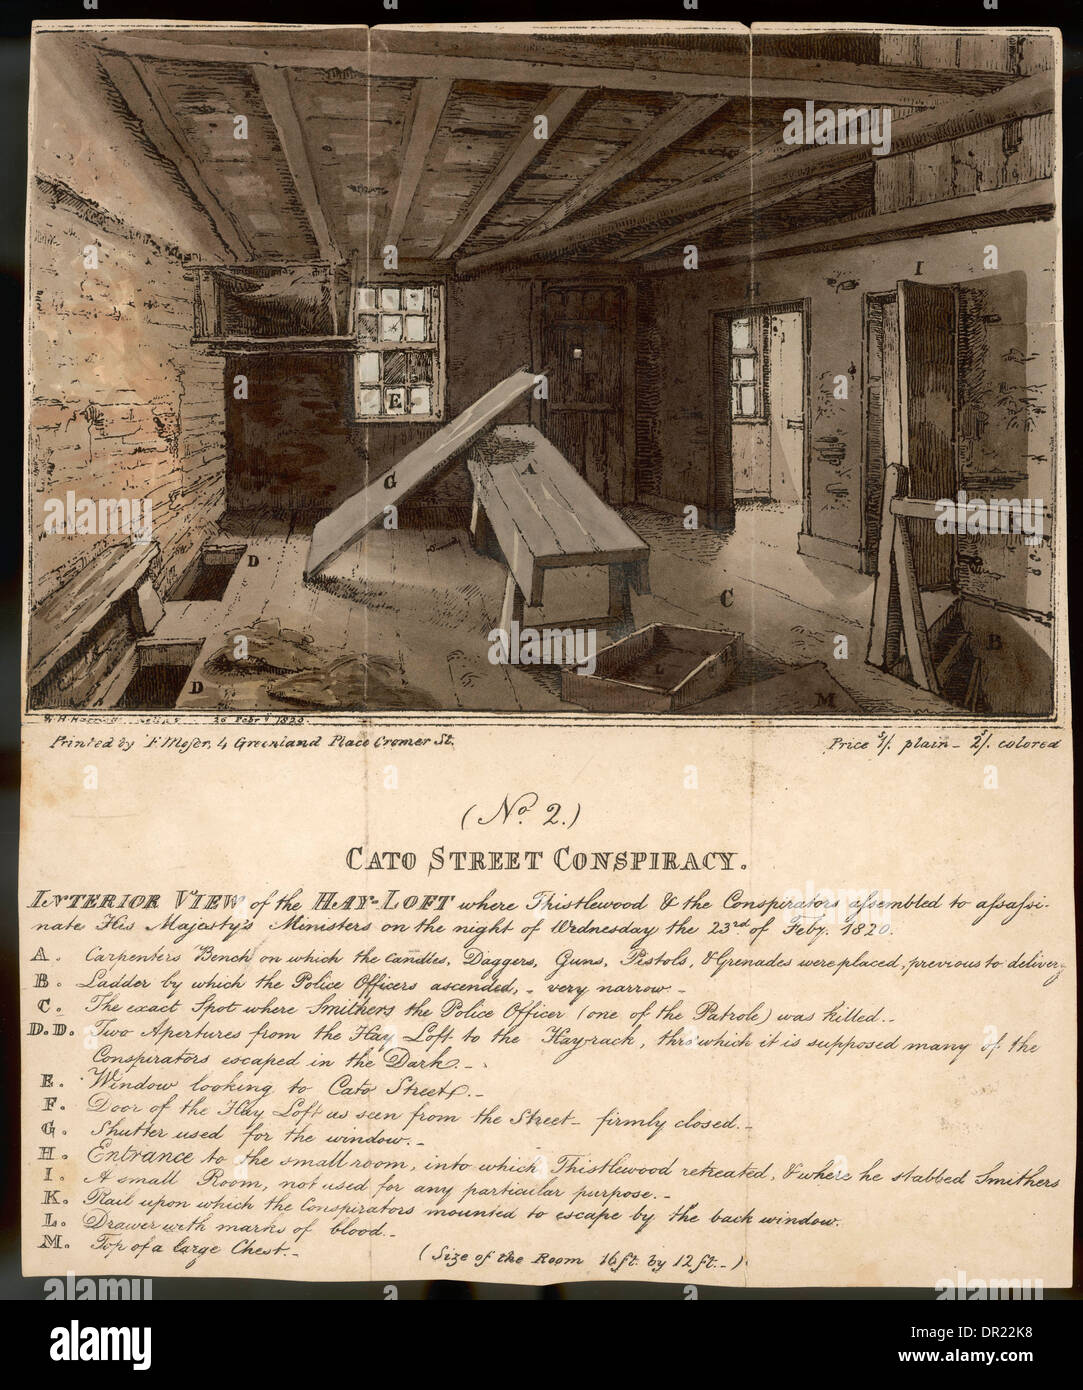 I
H
E
F
A
G
D
C
K
B
L
D
M
26 Febry 1820.
Printed by F. Moser, 4 Greenland Place Cromer St.
Price 1/. plain – 2/. colored
(No. 2.)
CATO STREET CONSPIRACY.
INTERIOR VIEW of the HAY-LOFT where Thistlewood & the Conspirators assembled to assassi-
nate His Majesty's Ministers on the night of Wednesday the 23rd of Feby. 1820.
A. Carpenters Bench on which the Candles, Daggers, Guns, Pistols, & Grenades were placed, previous to delivery
B. Ladder by which the Police Officers ascended, – very narrow. –
C. The exact Spot where Smithers the Police Officer (one of the Patrole) was killed. –
D.D. Two Apertures from the Hay Loft to the Hay-rack, thro' which it is supposed many of the
Conspirators escaped in the Dark. –
E. Window looking to Cato Street. –
F. Door of the Hay Loft as seen from the Street – firmly closed. –
G. Shutter used for the window. –
H. Entrance to the small room, into which Thistlewood retreated, & where he stabbed Smithers
I. A small Room, not used for any particular purpose. –
K. Rail upon which the Conspirators mounted to escape by the back window.
L. Drawer with marks of blood. –
M. Top of a large Chest. –
(Size of the Room 16 ft. by 12 ft. –)
alamy
alamy stock photo
DR22K8
www.alamy.com